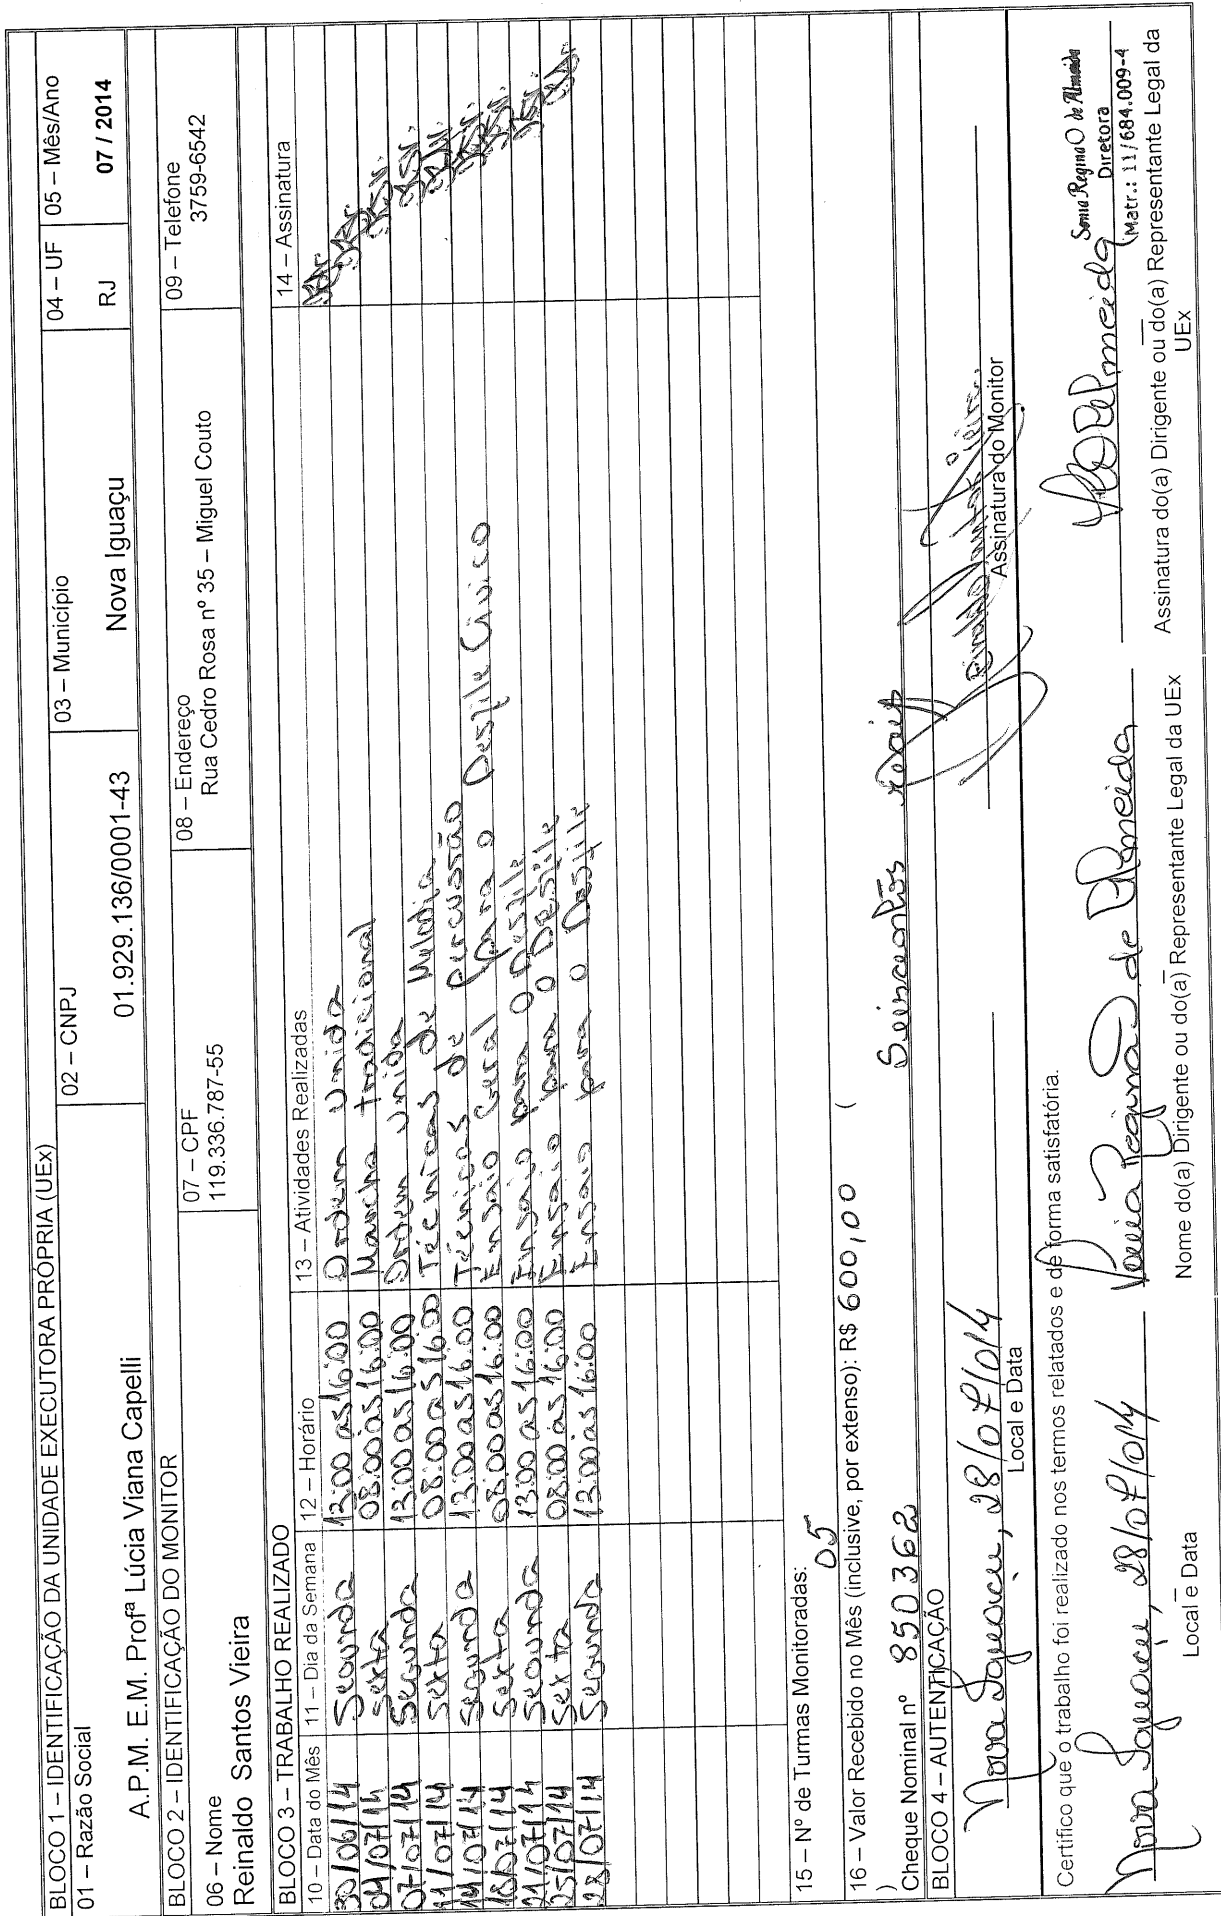 BLOCO 1 – IDENTIFICAÇÃO DA UNIDADE EXECUTORA PRÓPRIA (UEx)
01 – Razão Social
A.P.M. E.M. Profª Lúcia Viana Capelli
02 – CNPJ
01.929.136/0001-43
03 – Município
Nova Iguaçu
04 – UF
RJ
05 – Mês/Ano
07 / 2014
BLOCO 2 – IDENTIFICAÇÃO DO MONITOR
06 – Nome
Reinaldo Santos Vieira
07 – CPF
119.336.787-55
08 – Endereço
Rua Cedro Rosa nº 35 – Miguel Couto
09 – Telefone
3759-6542
BLOCO 3 – TRABALHO REALIZADO
10 – Data do Mês 11 – Dia da Semana 12 – Horário 13 – Atividades Realizadas 14 – Assinatura
30/06/14 Segunda 13:00 as 16:00 Ordem Unida
04/07/14 Sexta 08:00 as 16:00 Marcha Tradicional
07/07/14 Segunda 13:00 as 16:00 Ordem Unida
11/07/14 Sexta 08:00 as 16:00 Técnicas de Melodia
14/07/14 Segunda 13:00 as 16:00 Técnicas de Percussão
18/07/14 Sexta 08:00 as 16:00 Ensaio Geral para o Desfile Civico
21/07/14 Segunda 13:00 as 16:00 Ensaio para o Desfile
25/07/14 Sexta 08:00 as 16:00 Ensaio para o Desfile
28/07/14 Segunda 13:00 as 16:00 Ensaio para o Desfile
15 – Nº de Turmas Monitoradas:
05
16 – Valor Recebido no Mês (inclusive, por extenso): R$ 600,00 ( Seiscentos reais
)
Cheque Nominal nº 850362
BLOCO 4 – AUTENTICAÇÃO
Nova Iguaçu, 28/07/014
Local e Data
Reinaldo Santos Vieira
Assinatura do Monitor
Certifico que o trabalho foi realizado nos termos relatados e de forma satisfatória.
Nova Iguaçu, 28/07/014
Local e Data
Sonia Regina O de Almeida
Nome do(a) Dirigente ou do(a) Representante Legal da UEx
SROAlmeida
Sonia Regina O de Almeida
Diretora
Matr.: 11/684.009-4
Assinatura do(a) Dirigente ou do(a) Representante Legal da
UEx